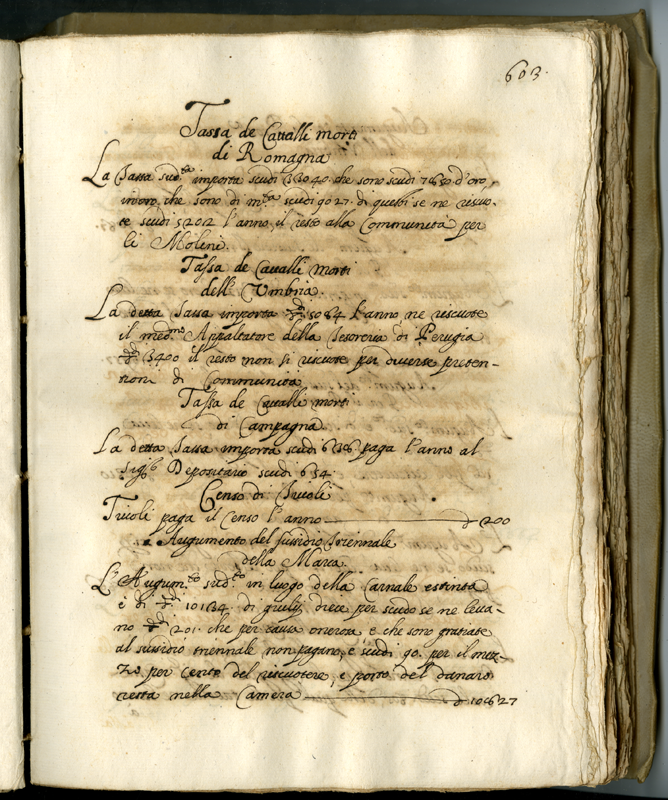 603.
Tassa de Cavalli morti
di Romagna
La Tassa sud.ta importa scudi che sono scudi d'oro,
in oro, che sono di m.ta scudi 9027. di quali se ne riscuo-
te scudi 5202 l'anno, il resto alla Communità per
li Molini.
Tassa de Cavalli morti
dell'Umbria.
La detta Tassa importa 5084 l'anno ne riscuote
il med.mo Appaltatore della Tesoreria di Perugia
3400 il resto non si riscuote per diverse preten-
tioni di Communità
Tassa de Cavalli morti
di Campagna
La detta Tassa importa scudi paga l'anno al
Sig.r Depositario scudi 634.
Censo di Tivoli
Tivoli paga il Censo l'anno 200
Augumento del sussidio Triennale
della Marca.
L'Augum.to sud.to in luogo della Carnale estinta
è di 10134. di giulij diece per scudo se ne leva-
no 201. che per causa onerosa, e che sono gratiate
al sussidio triennale non pagano, e scudi 90. per il mez-
zo per cento del riscuotere, e porto del danaro
resta nella Camera